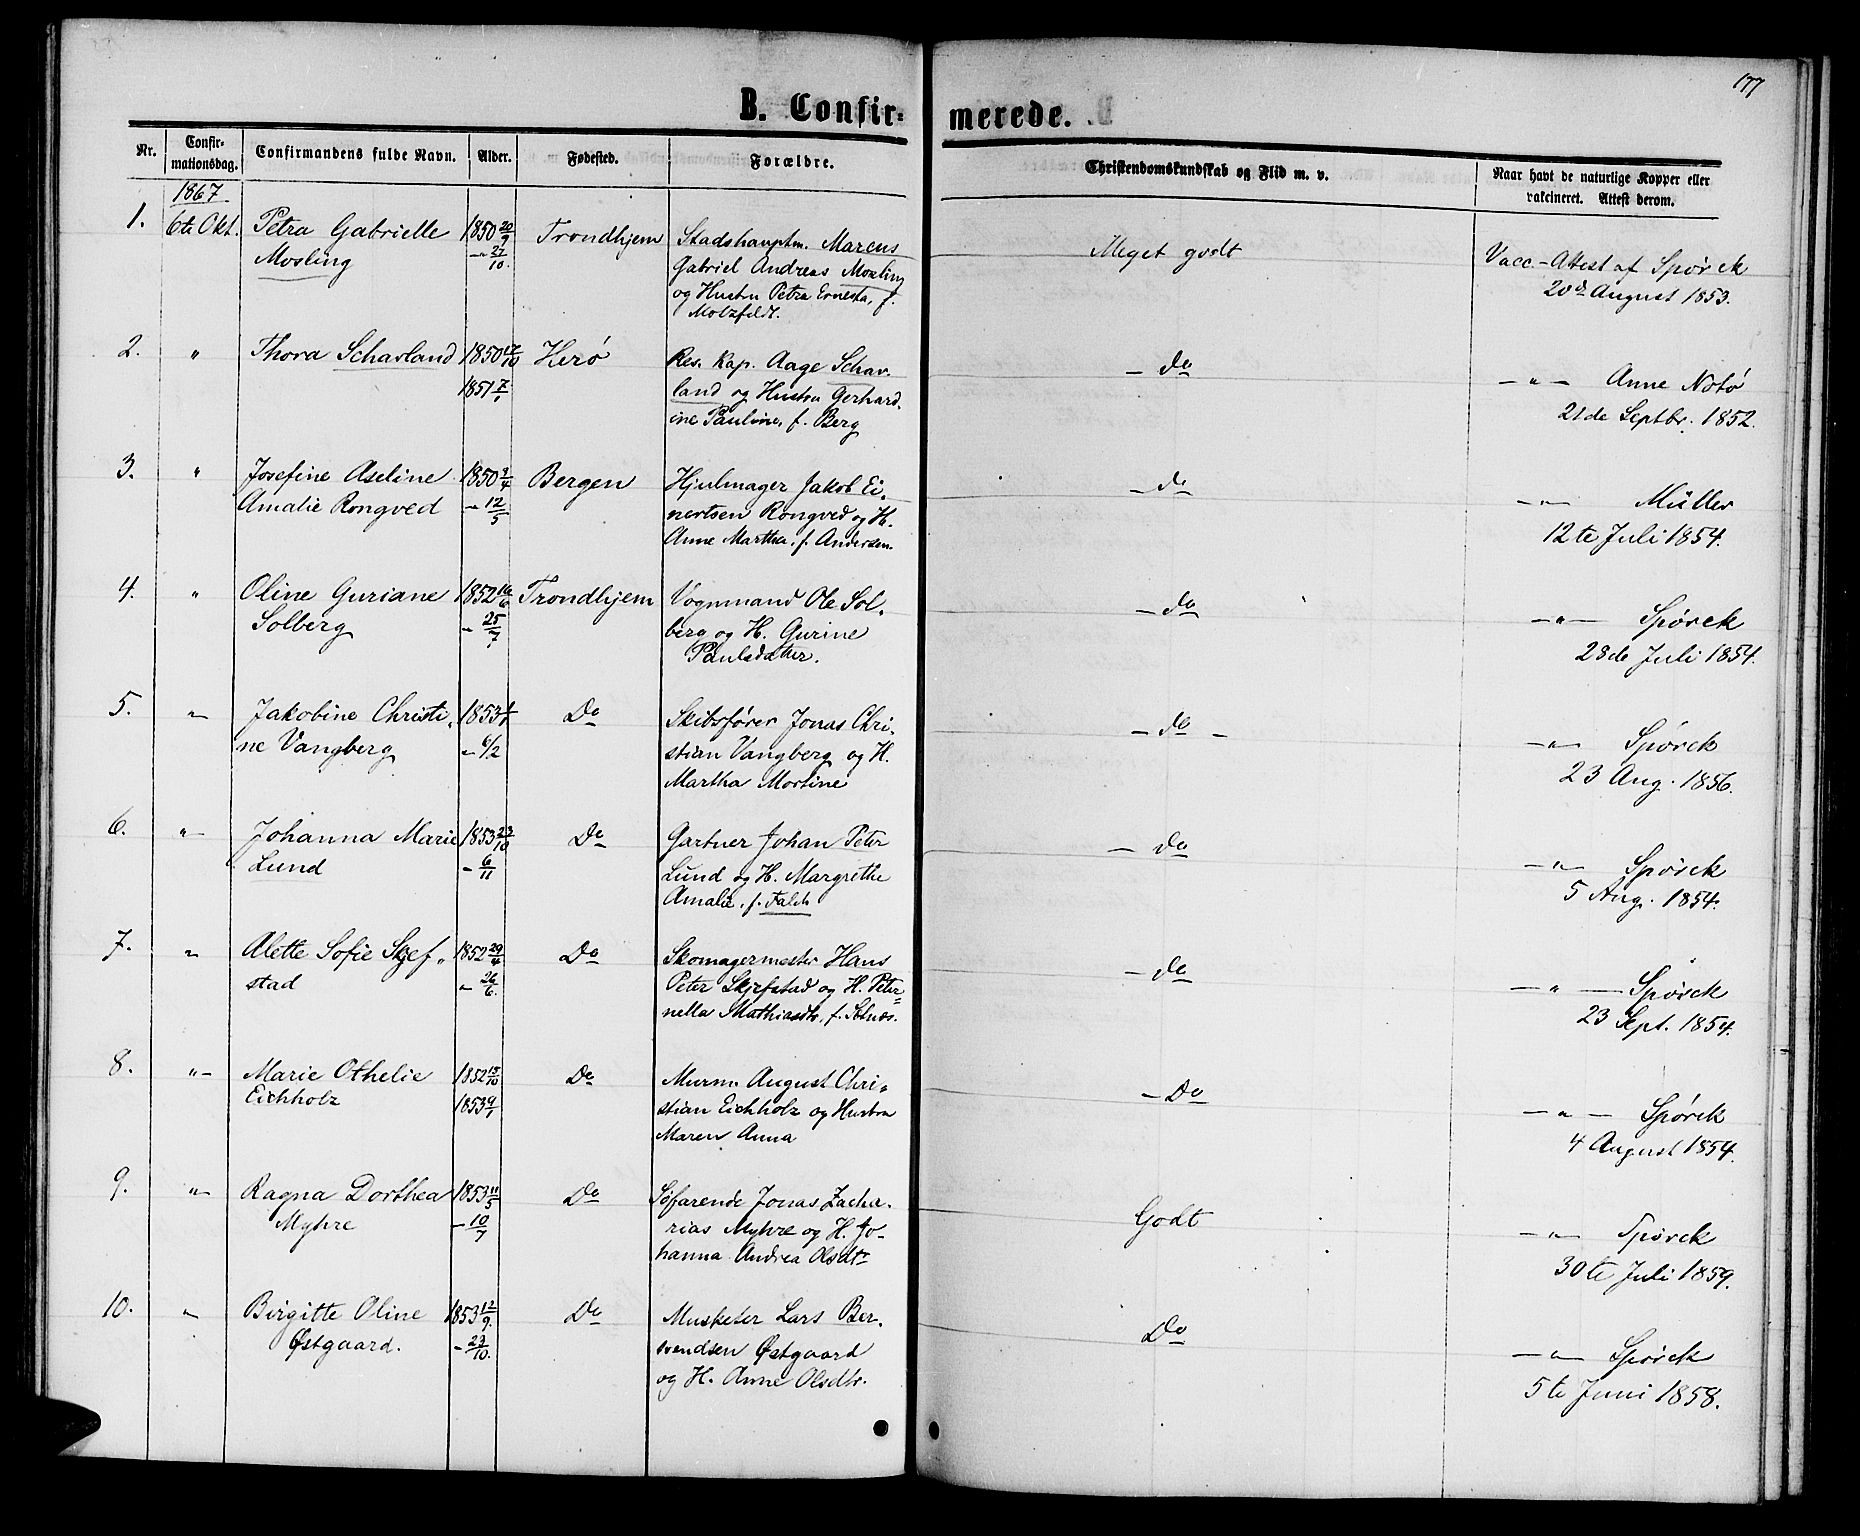 177
B. Confir-
merede.
Nr.
Confir-
mationsdag.
Confirmandens fulde Navn.
Alder.
Fødested.
Forældre.
Christendomskundskab og Flid m. v.
Naar havt de naturlige Kopper eller
vakcineret. Attest derom.
1867
1. 6te Okt. Petra Gabrielle 1850 20/9 Trondhjem Stadshauptm. Marcus Meget godt Vacc.-Attest af Spørck
Mosling - 27/10. Gabriel Andreas Mosling 20de August 1853.
og Hustru Petra Ernesta, f.
Motzfeldt.
2. " Thora Schavland 1850 17/10 Herø Res. Kap. Aage Schav- - do - " - Anne Notø
1851 7/1 land og Hustru Gerhard- 21de Septbr. 1852.
ine Pauline, f. Berg
3. " Josefine Aseline 1850 9/4 Bergen Hjulmager Jakob Ei- - do - " - Müller
Amalie Rongved - 12/5 nertsen Rongved og H. 12te Juli 1854.
Anne Martha, f. Andersen.
4. " Oline Guriane 1852 16/6 Trondhjem Vognmand Ole Sol- - do - " - Spørck
Solberg - 25/7 berg og H. Gurine 28de Juli 1854.
Paulsdatter.
5. " Jakobine Christi- 1853 1/1 Do Skibsfører Jonas Chri- - do - - " - Spørck
ne Vangberg - 6/2 stian Vangberg og H. 23 Aug. 1856.
Martha Mortine
6. " Johanna Marie 1853 23/10 Do Gartner Johan Peter - do - " - Spørck
Lund - 6/11 Lund og H. Margrethe 5 Aug. 1854.
Amalie, f. Falch
7. " Alette Sofie Skjef- 1852 29/4 Do Skomagermester Hans - do - " - Spørck
stad - 26/6. Peter Skjefstad og H. Peter- 23 Sept. 1854.
nella Mathiasdtr, f.
8. " Marie Othelie 1852 15/10 Do Murm. August Chri- - Do - " - Spørck
Eichholz 1853 9/1 stian Eichholz og Hustru 4 August 1854.
Maren Anna
9. " Ragna Dorthea 1853 11/5 Do Søfarende Jonas Zacha- Godt - " - Spørck
Myhre - 10/7 rias Myhre og H. Jo- 30te Juli 1859.
hanna Andrea Olsdtr
10. " Birgitte Oline 1853 12/9. Do Musketer Lars Ber- Do - " - Spørck
Østgaard. - 23/10. svendsen Østgaard 5te Juni 1858.
og H. Anne Olsdtr.